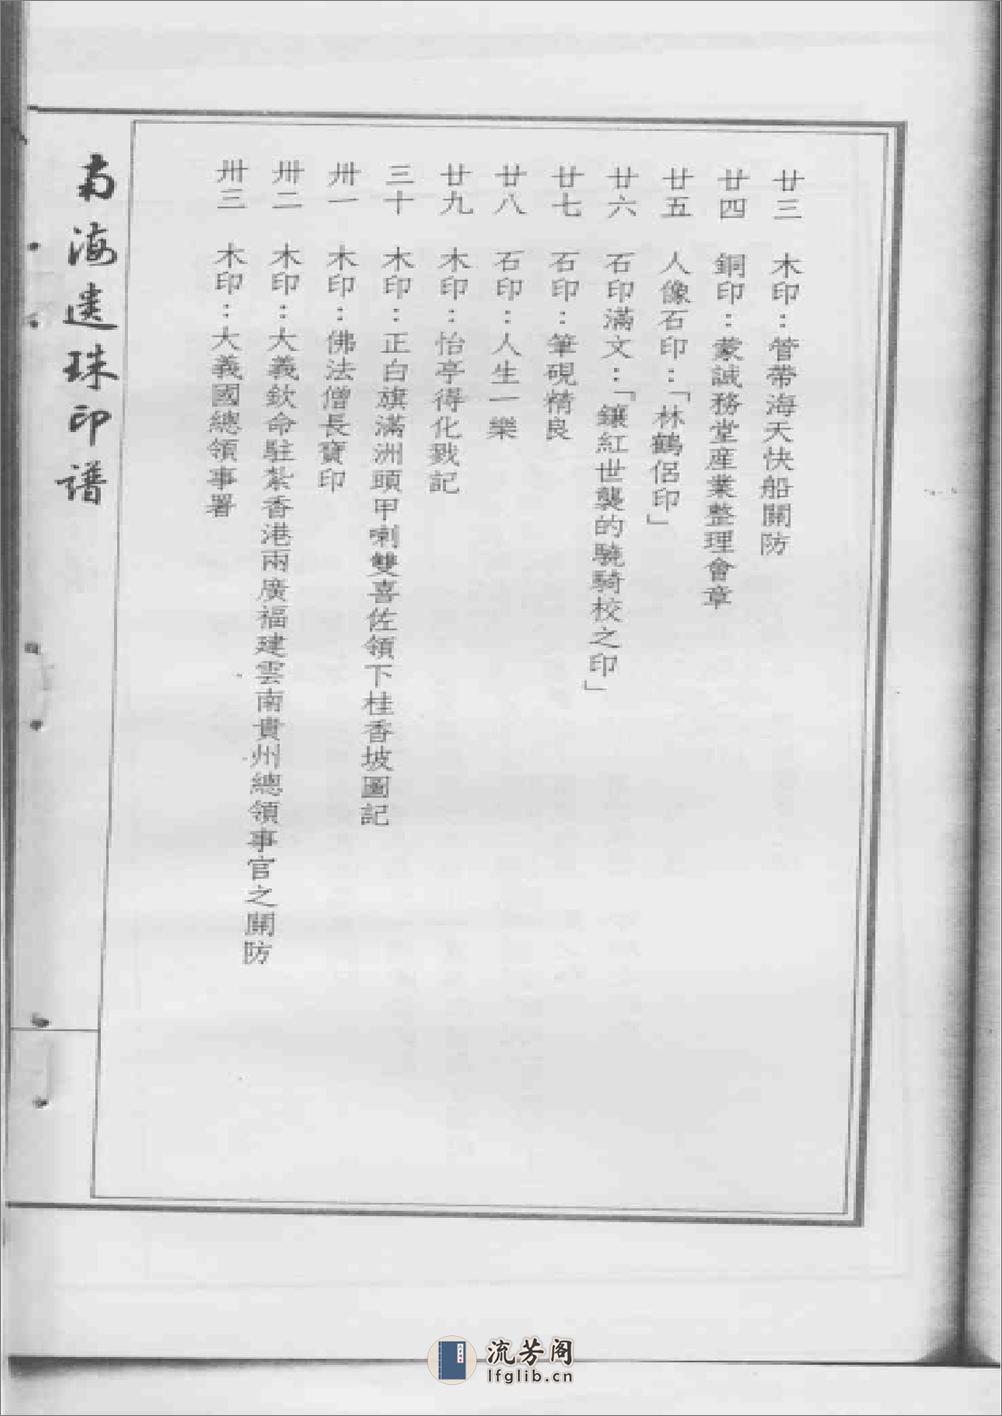 廿三　木印：管帶海天快船關防
廿四　銅印：蒙誠務堂産業整理會章
廿五　人像石印：「林鶴侶印」
廿六　石印滿文：「鑲紅世襲的驍騎校之印」
廿七　石印：筆硯精良
廿八　石印：人生一樂
廿九　木印：怡亭得化戳記
三十　木印：正白旗滿洲頭甲喇雙喜佐領下桂香坡圖記
卅一　木印：佛法僧長寶印
卅二　木印：大義欽命駐紮香港兩廣福建雲南貴州總領事官之關防
卅三　木印：大義國總領事署
南海遺珠印谱
流芳阁
lfglib.cn